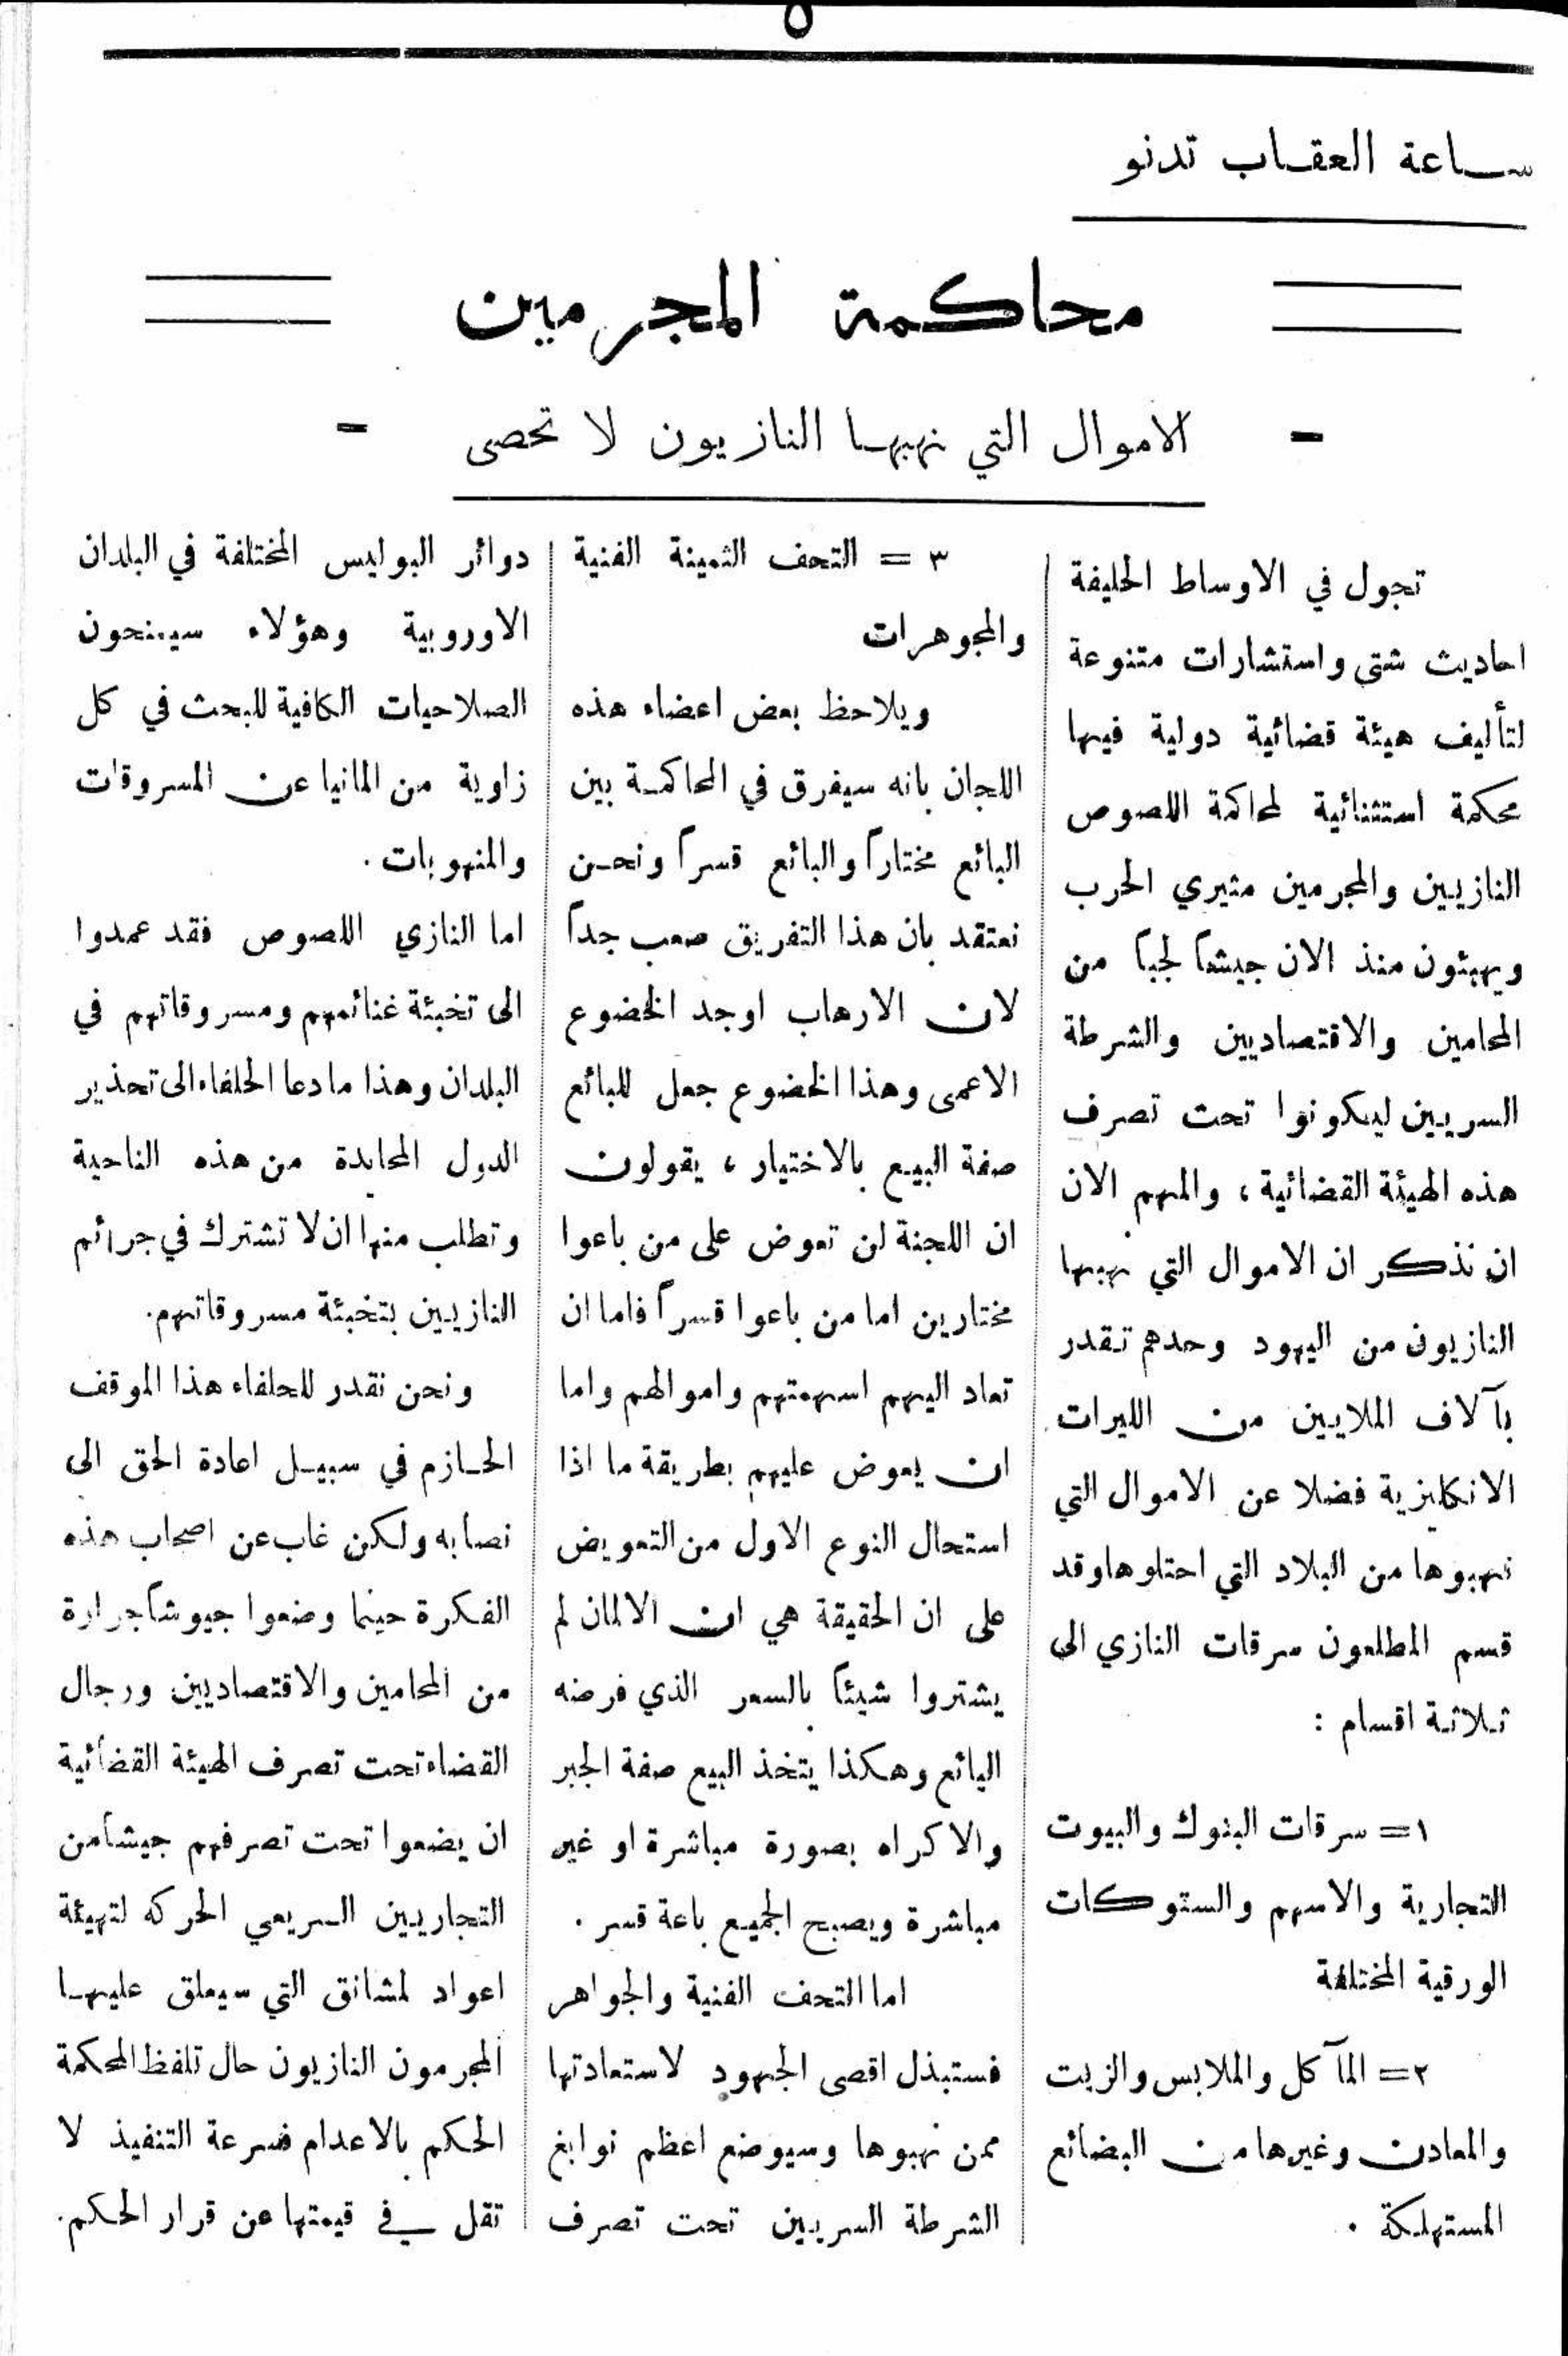 ٥
ساعة العقاب تدنو
محاكمة المجرمين
- الاموال التي نهبها النازيون لا تحصى -
تجول في الاوساط الحليفة
احاديث شتى واستشارات متنوعة
لتأليف هيئة قضائية دولية فيها
محكمة استثنائية لمحاكمة اللصوص
النازيين والمجرمين مثيري الحرب
ويهيئون منذ الان جيشاً لجباً من
المحامين والاقتصاديين والشرطة
السريين ليكونوا تحت تصرف
هذه الهيئة القضائية ، والمهم الان
ان نذكر ان الاموال التي نهبها
النازيون من اليهود وحدهم تقدر
بآلاف الملايين من الليرات
الانكليزية فضلا عن الاموال التي
نهبوها من البلاد التي احتلوها وقد
قسم المطلعون سرقات النازي الى
ثلاثة اقسام :
١= سرقات البنوك والبيوت
التجارية والاسهم والستوكات
الورقية المختلفة
٢= المآكل والملابس والزيت
والمعادن وغيرها من البضائع
المستهلكة .
٣ = التحف الثمينة الفنية
والمجوهرات
ويلاحظ بعض اعضاء هذه
اللجان بانه سيفرق في المحاكمة بين
البائع مختاراً والبائع قسراً ونحن
نعتقد بان هذا التفريق صعب جداً
لان الارهاب اوجد الخضوع
الاعمى وهذا الخضوع جعل للبائع
صفة البيع بالاختيار ، يقولون
ان اللجنة لن تعوض على من باعوا
مختارين اما من باعوا قسراً فاما ان
تعاد اليهم اسهمتهم واموالهم واما
ان يعوض عليهم بطريقة ما اذا
استحال النوع الاول من التعويض
على ان الحقيقة هي ان الالمان لم
يشتروا شيئاً بالسعر الذي فرضه
البائع وهكذا يتخذ البيع صفة الجبر
والاكراه بصورة مباشرة او غير
مباشرة ويصبح الجميع باعة قسر .
اما التحف الفنية والجواهر
فستبذل اقصى الجهود لاستعادتها
ممن نهبوها وسيوضع اعظم نوابغ
الشرطة السريين تحت تصرف
دوائر البوليس المختلفة في البلدان
الاوروبية وهؤلاء سيمنحون
الصلاحيات الكافية للبحث في كل
زاوية من المانيا عن المسروقات
والمنهوبات .
اما النازي اللصوص فقد عمدوا
الى تخبئة غنائمهم ومسروقاتهم في
البلدان وهذا ما دعا الحلفاء الى تحذير
الدول المحايدة من هذه الناحية
وتطلب منها ان لا تشترك في جرائم
النازيين بتخبئة مسروقاتهم.
ونحن نقدر للحلفاء هذا الموقف
الحازم في سبيل اعادة الحق الى
نصابه ولكن غاب عن اصحاب هذه
الفكرة حينما وضعوا جيوشاً جرارة
من المحامين والاقتصاديين ورجال
القضاء تحت تصرف الهيئة القضائية
ان يضعوا تحت تصرفهم جيشاً من
التجاريين السريعي الحركه لتهيئة
اعواد لمشانق التي سيعلق عليها
المجرمون النازيون حال تلفظ المحكمة
الحكم بالاعدام فسرعة التنفيذ لا
تقل في قيمتها عن قرار الحكم.